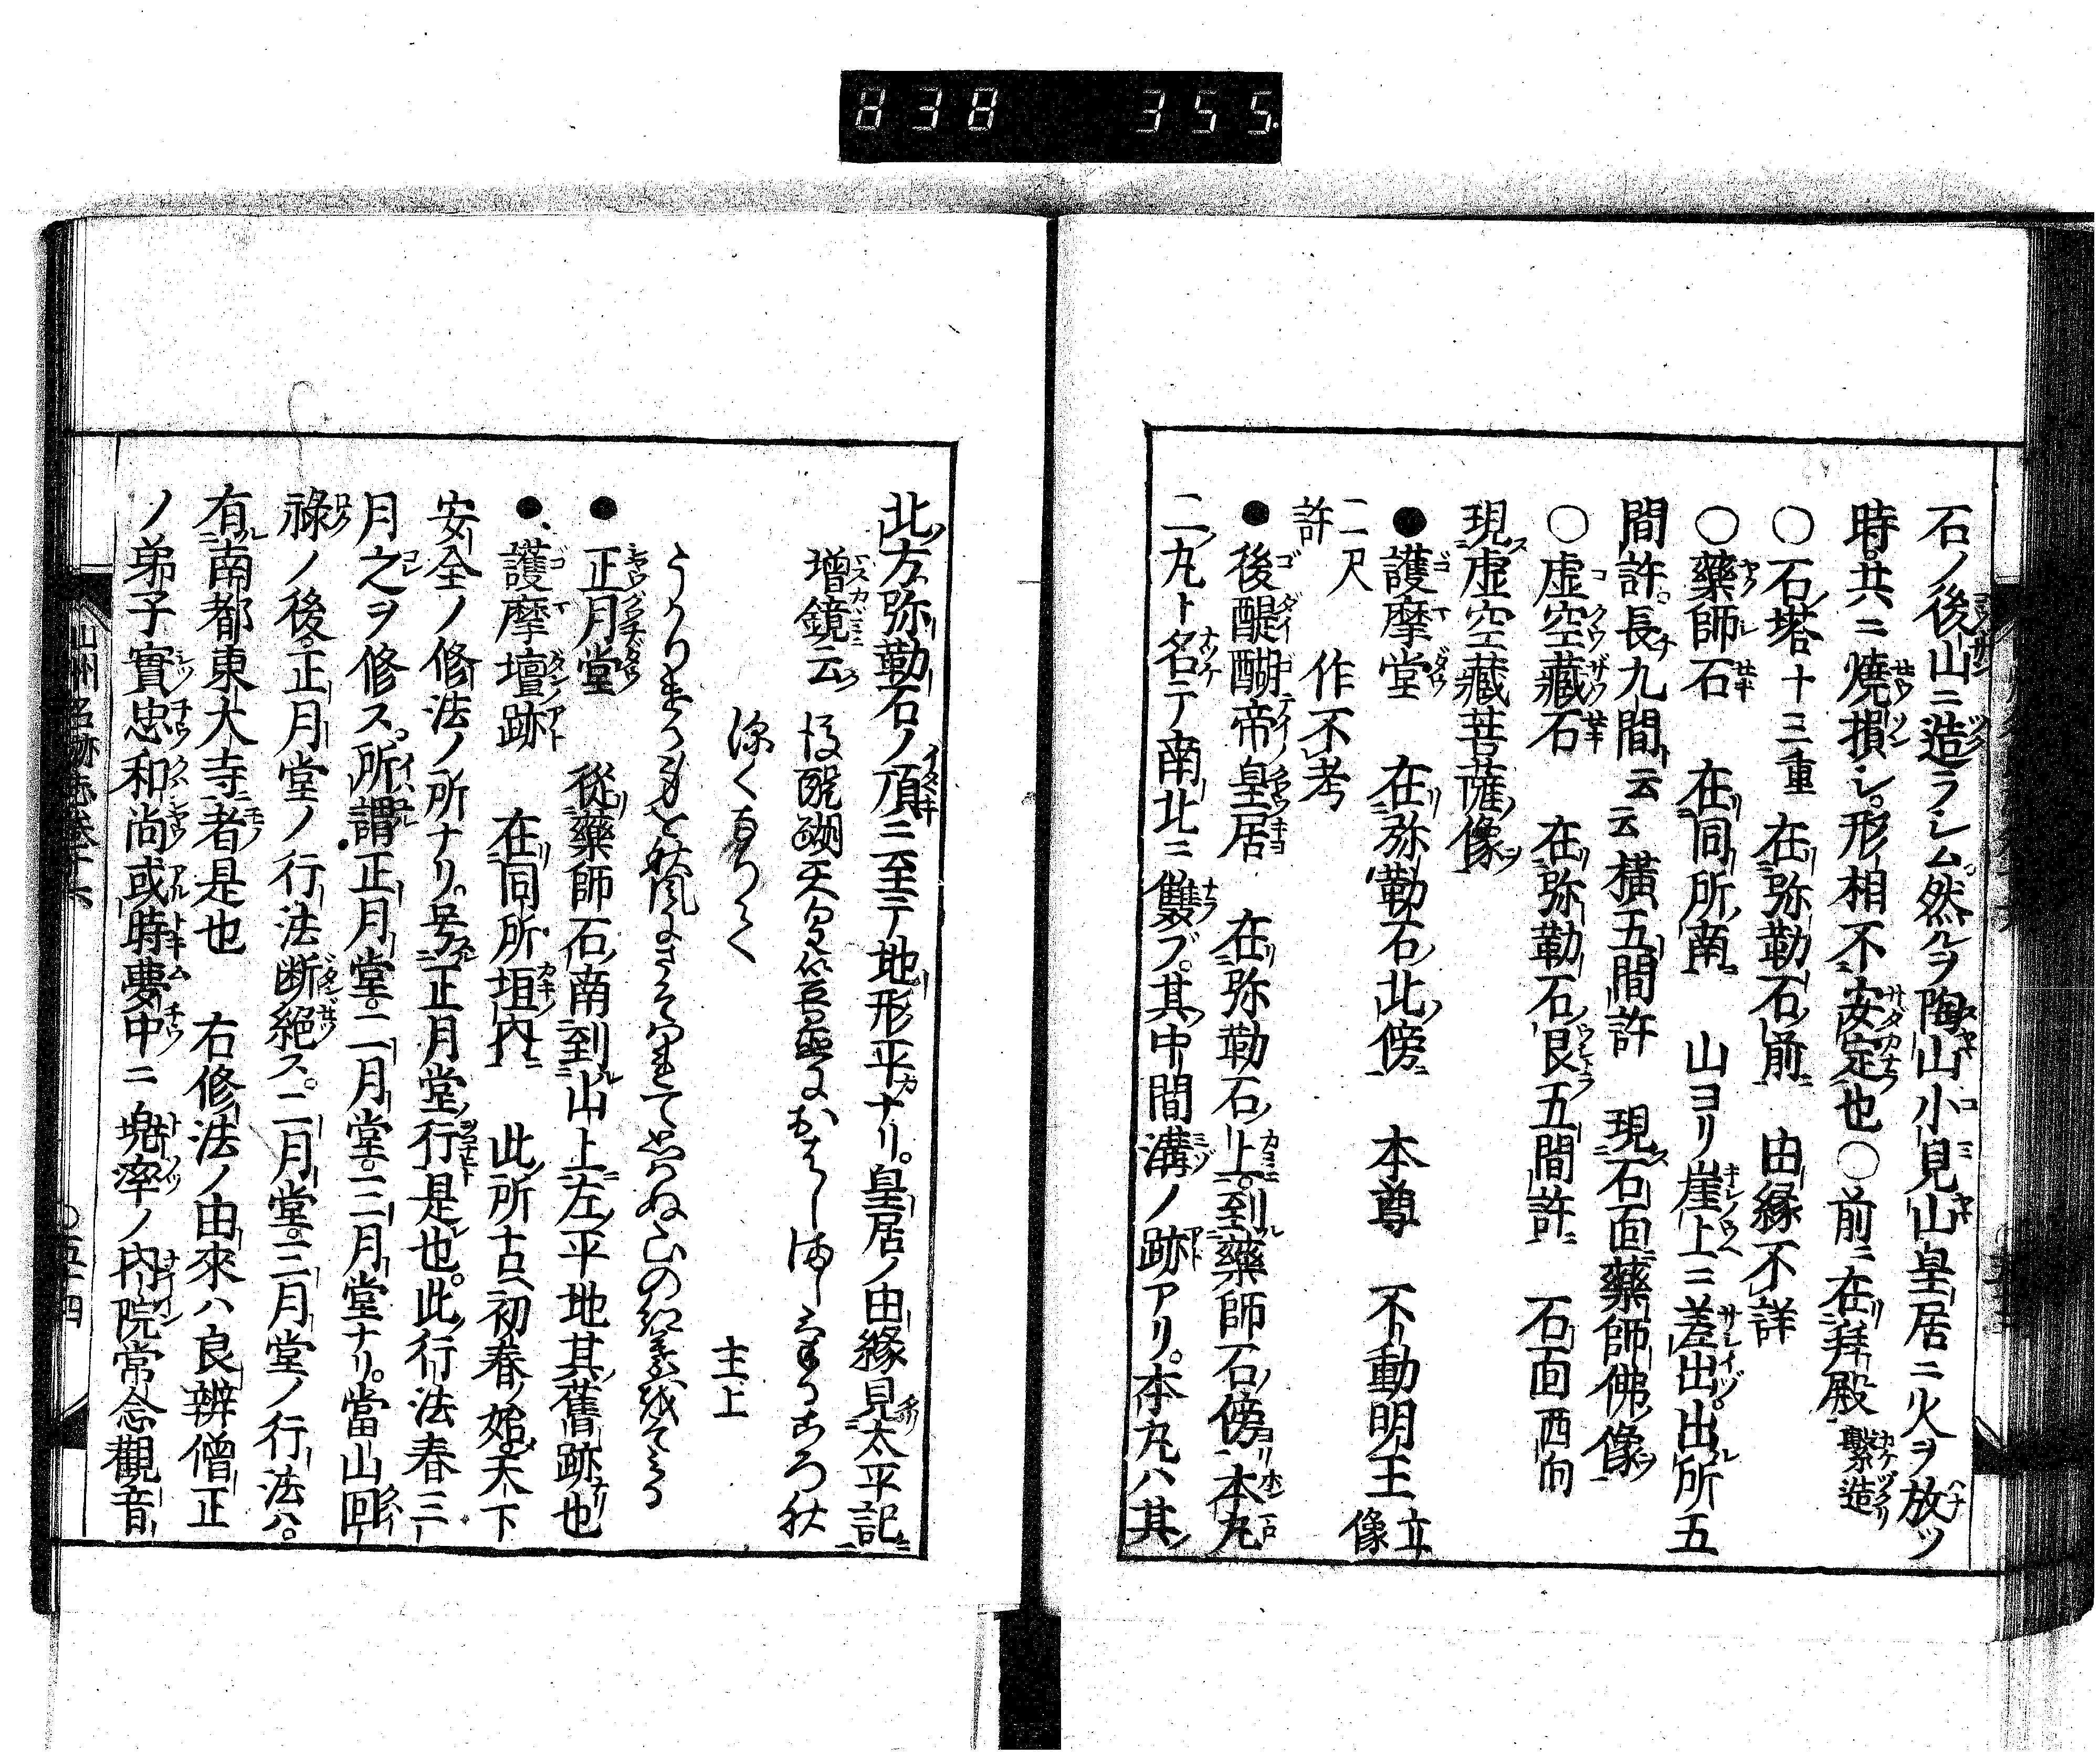 838 355
石ノ後山ニ造ラシム然ルヲ陶山小見山皇居ニ火ヲ放ツ
時共ニ燒損シ形相不安定也○前ニ在拜殿繫造
○石塔十三重 在弥勒石前 由縁不詳
○藥師石 在同所南 山ヨリ崖上ニ差出出所五
間許長九間云云横五間許 現石面藥師佛像
○虚空藏石 在弥勒石艮五間許 石面西向
現虚空藏菩薩像
●護摩堂 在弥勒石北傍 本尊 不動明王立像
二尺許 作不考
●後醍醐帝皇居 在弥勒石上到藥師石傍本丸
二丸ト名テ南北ニ雙ブ其中間溝ノ跡アリ本丸ハ其
北方弥勒石ノ頂ニ至テ地形平ナリ皇居ノ由縁見太平記
增鏡云 後醍醐天皇笠置におはしましけるころ秋
深くなりて 主上
うかりける身を秋風にさそはれて思はぬ山の紅葉をそみる
●正月堂 從藥師石南到山上左平地其舊跡也
●護摩壇跡 在同所垣内 此所古初春始天下
安全ノ修法ノ所ナリ号正月堂行是也此行法春三
月之ヲ修ス所謂正月堂二月堂三月堂ナリ當山回
祿ノ後正月堂ノ行法断絶ス二月堂三月堂ノ行法ハ
有南都東大寺者是也 右修法ノ由來ハ良辨僧正
ノ弟子實忠和尚或時夢中ニ兜率ノ内院常念觀音
山州名跡志巻十六 ○五十四